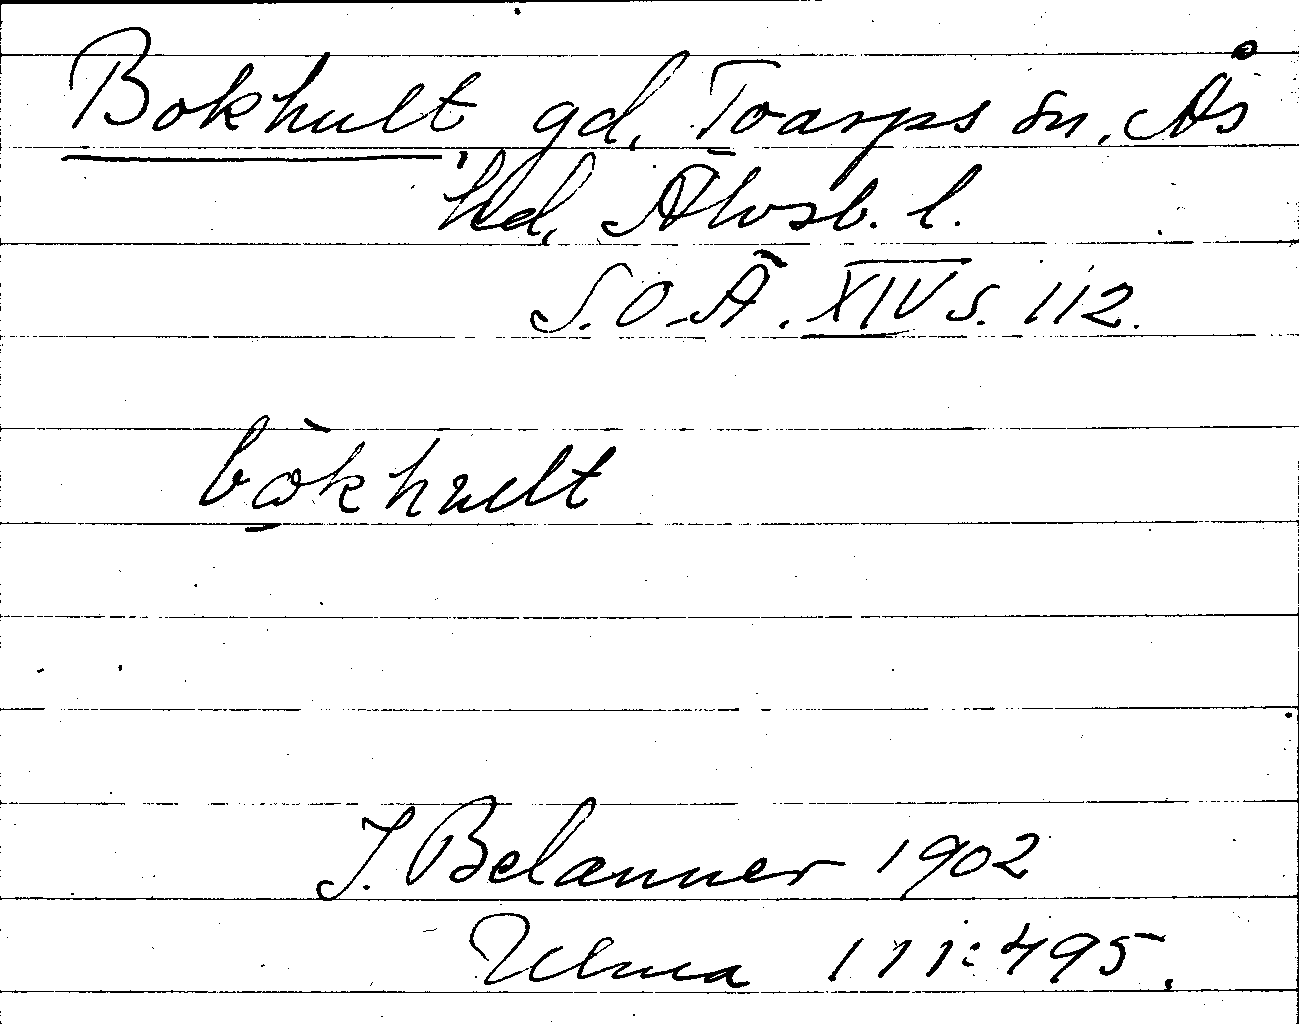 Bokhult, gd, Toarps sn, Ås
hd, Älvsb. l.
S.O.Ä. XIV s. 112.
bo̱̊̀khult
J. Belanner 1902
Ulma 111:495.